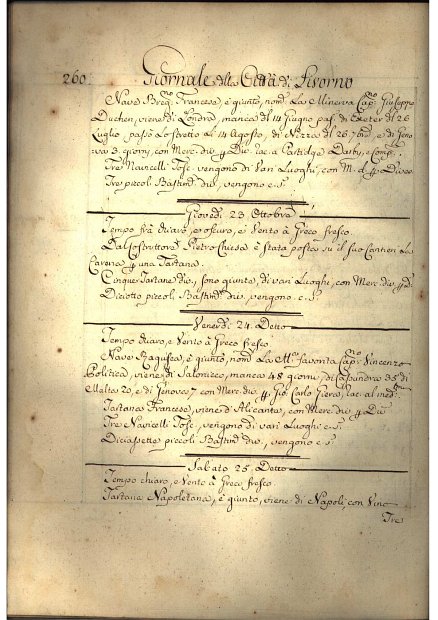 260. Giornale della Città di Livorno
Nave Breg.no Francese, è giunto, nom.o La Minerva Cap.no Giuseppe
Duchen, viene di Londra, manca dl 14 Giugno pas. di Exeter dl 26
Luglio, passò Lo stretto Li 14 Agosto, di Nizza dl 26 7bre, e di Geno
va 3 giorni, con Merc. div. Dic. rac. a Partidge Darby, e Comp.
Tre Navicelli Tosc. vengono di Vari Luoghi, con M. d. Div.
Tre piccoli Bastim. div. vengono c. s.
Giovedì 23 Ottobre
Tempo frà chiaro, e oscuro, e Vento à Greco fresco.
Dal Costruttore Pietro Chiesa è stata posta su il suo Cantieri La
Carena una Tartana.
Cinque Tartane div., sono giunte, di vari Luoghi, con Merc. div. d.
Diciotto piccoli Bastim. div. vengono c. s.
Venerdì 24 Detto
Tempo chiaro, e Vento à Greco fresco.
Nave Ragusea, è giunto, nom.o La M.a favorita Cap.no Vincenzo
Politica, viene di Salonicco, manca 48 giorni, di Casandra 35 di
Malta 20, e di Genova 7 con Merc. div. Gio. Carlo rac. al med.
Tartana Francese, viene d'Alicante, con Merc. div. Div.
Tre Navicelli Tosc., vengono di vari Luoghi c. s.
Diciassette piccoli Bastim. div., vengono c. s.
Sabato 25 Detto
Tempo chiaro, e Vento à Greco fresco.
Tartana Napoletana, è giunto, viene di Napoli, con Vino
Tre